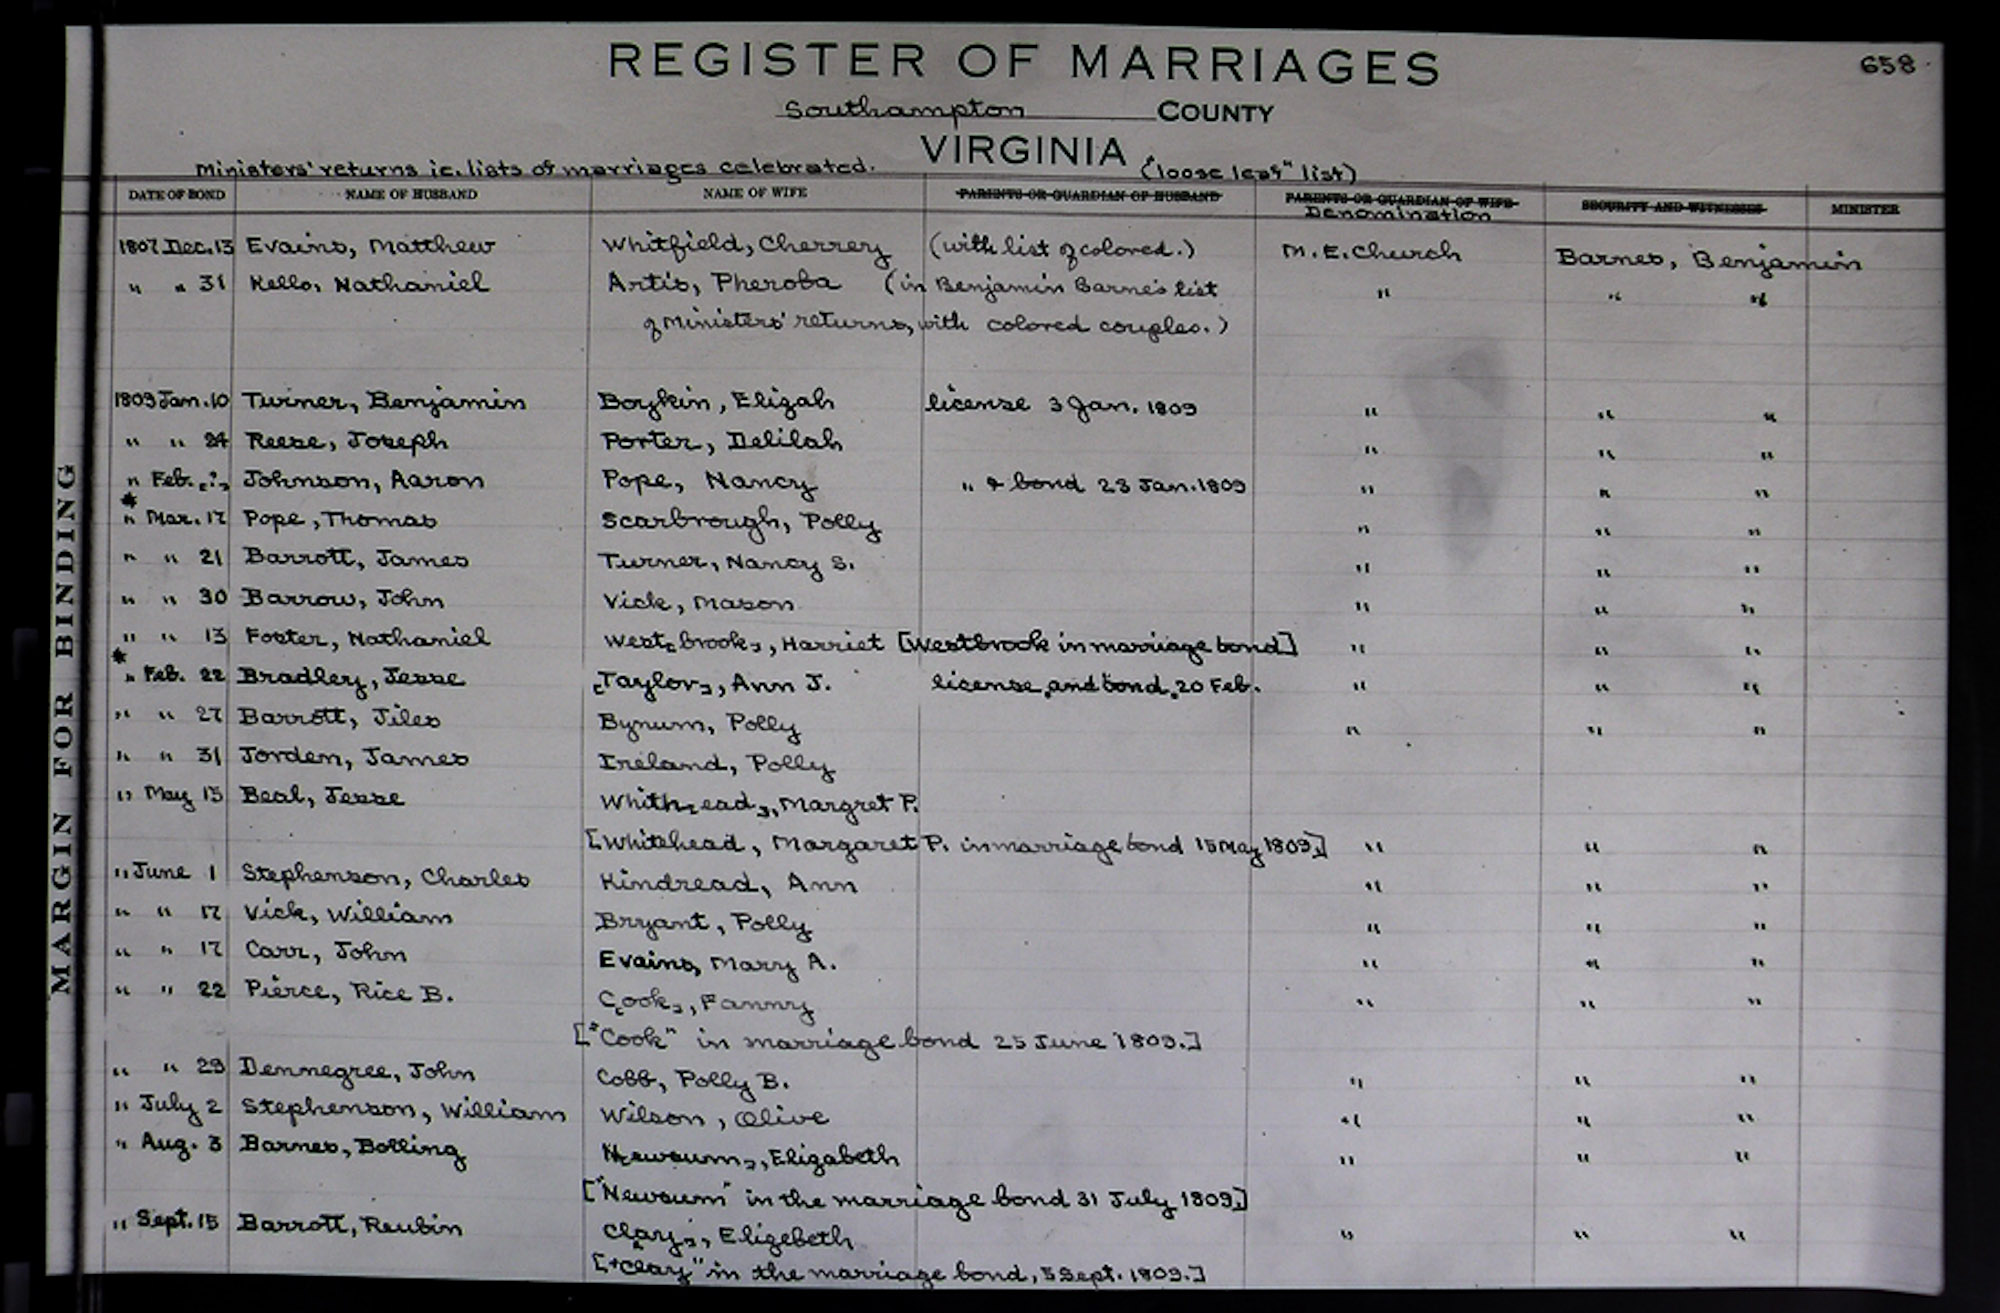 REGISTER OF MARRIAGES 658
Southampton COUNTY
VIRGINIA
Ministers' returns i.e. lists of marriages celebrated. ("loose leaf" list)
DATE OF BOND NAME OF HUSBAND NAME OF WIFE PARENTS OR GUARDIAN OF HUSBAND PARENTS OR GUARDIAN OF WIFE SECURITY AND WITNESSES MINISTER
Denomination
1807 Dec. 13 Evains, Matthew Whitfield, Cherrey (with list of colored.) M.E. Church Barnes, Benjamin
" " 31 Kello, Nathaniel Artis, Pheroba (in Benjamin Barne's list " " "
of Ministers' returns, with colored couples.)
1809 Jan. 10 Turner, Benjamin Boykin, Elizah license 3 Jan. 1809 " " "
" " 24 Reese, Joseph Porter, Delilah " " "
" Feb. [?] Johnson, Aaron Pope, Nancy " & bond 23 Jan. 1809 " " "
* " Mar. 17 Pope, Thomas Scarbrough, Polly " " "
" " 21 Barrott, James Turner, Nancy S. " " "
" " 30 Barrow, John Vick, Mason " " "
" " 13 Foster, Nathaniel West[brook], Harriet [Westbrook in marriage bond] " " "
* " Feb. 22 Bradley, Jesse [Taylor], Ann J. license and bond 20 Feb. " " "
" " 27 Barrott, Jiles Bynum, Polly " " "
" " 31 Jorden, James Ireland, Polly
" May 15 Beal, Jesse Whith[ead], Margret P.
[Whitehead, Margaret P. in marriage bond 15 May 1809.] " " "
" June 1 Stephenson, Charles Kindread, Ann " " "
" " 17 Vick, William Bryant, Polly " " "
" " 17 Carr, John Evains, Mary A. " " "
" " 22 Pierce, Rice B. C[ook], Fanny " " "
["Cook" in marriage bond 25 June 1809.]
" " 29 Dennegree, John Cobb, Polly B. " " "
" July 2 Stephenson, William Wilson, Olive " " "
" Aug. 3 Barnes, Bolling N[ewsum], Elizabeth " " "
["Newsum" in the marriage bond 31 July 1809.]
" Sept. 15 Barrott, Reubin Cl[ary], Elizebeth " " "
["Clay" in the marriage bond, 5 Sept. 1809.]
MARGIN FOR BINDING